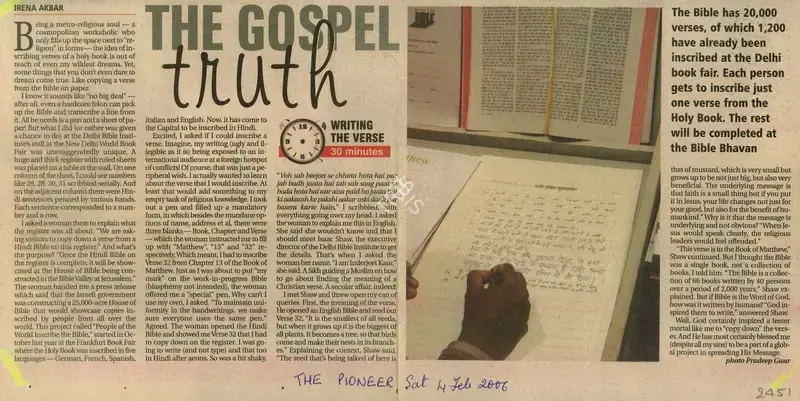 IRENA AKBAR
THE GOSPEL
truth
Being a metro-religious soul — a
cosmopolitan workaholic who
only fills up the space next to "re-
ligion" in forms — the idea of in-
scribing verses of a holy book is out of
reach of even my wildest dreams. Yet,
some things that you don't even dare to
dream come true. Like copying a verse
from the Bible on paper.
I know it sounds like "no big deal" —
after all, even a hardcore felon can pick
up the Bible and transcribe a line from
it. All he needs is a pen and a sheet of pa-
per! But what I did (or rather was given
a chance to do) at the Delhi Bible Insti-
tute's stall at the New Delhi World Book
Fair was unquestionably unique. A
huge and thick register with ruled sheets
was placed on a table at the stall. On one
column of the sheet, I could see numbers
like 29, 28, 30, 31 scribbled serially. And
on the adjacent column there were Hin-
di sentences penned by various hands.
Each sentence corresponded to a num-
ber and a row.
I asked a woman there to explain what
the register was all about. "We are ask-
ing visitors to copy down a verse from a
Hindi Bible on this register." And what's
the purpose? "Once the Hindi Bible on
the register is complete, it will be show-
cased at the House of Bible being con-
structed in the Bible Valley at Jerusalem."
The woman handed me a press release
which said that the Israeli government
was constructing a 25,000-acre House of
Bible that would showcase copies in-
scribed by people from all over the
world. This project called "People of the
World Inscribe the Bible," started in Oc-
tober last year at the Frankfurt Book Fair
where the Holy Book was inscribed in five
languages — German, French, Spanish,
Italian and English. Now, it has come to
the Capital to be inscribed in Hindi.
Excited, I asked if I could inscribe a
verse. Imagine, my writing (ugly and il-
legible as it is) being exposed to an in-
ternational audience at a foreign hotspot
of conflicts! Of course, that was just a pe-
ripheral wish. I actually wanted to learn
about the verse that I would inscribe. At
least that would add something to my
empty rack of religious knowledge. I took
out a pen and filled up a mandatory
form, in which besides the mundane op-
tions of name, address et al, there were
three blanks — Book, Chapter and Verse
— which the woman instructed me to fill
up with "Matthew", "13" and "32" re-
spectively. Which meant, I had to inscribe
Verse 32 from Chapter 13 of the Book of
Matthew. Just as I was about to put "my
mark" on the work-in-progress Bible
(blasphemy not intended), the woman
offered me a "special" pen. Why can't I
use my own, I asked. "To maintain uni-
formity in the handwritings, we make
sure everyone uses the same pen."
Agreed. The woman opened the Hindi
Bible and showed me Verse 32 that I had
to copy down on the register. I was go-
ing to write (and not type) and that too
in Hindi after aeons. So was a bit shaky.
WRITING
THE VERSE
30 minutes
"Voh sab beejon se chhota hota hai par
jab badh jaata hai tab sab saag paat se
bada hota hai aur aisa paid ho jaata hai
ki aakaash ke pakshi aakar uski daal par
basera karte hain," I scribbled, with
everything going over my head. I asked
the woman to explain me this in English.
She said she wouldn't know and that I
should meet Isaac Shaw, the executive
director of the Delhi Bible Institute to get
the details. That's when I asked the
woman her name. "I am Inderjeet Kaur,"
she said. A Sikh guiding a Muslim on how
to go about finding the meaning of a
Christian verse. A secular affair, indeed!
I met Shaw and threw open my can of
queries. First, the meaning of the verse.
He opened an English Bible and read out
Verse 32, "It is the smallest of all seeds,
but when it grows up it is the biggest of
all plants. It becomes a tree, so that birds
come and make their nests in its branch-
es." Explaining the context, Shaw said,
"The seed that's being talked of here is
The Bible has 20,000
verses, of which 1,200
have already been
inscribed at the Delhi
book fair. Each person
gets to inscribe just
one verse from the
Holy Book. The rest
will be completed at
the Bible Bhavan
that of mustard, which is very small but
grows up to be not just big, but also very
beneficial. The underlying message is
that faith is a small thing but if you put
it in Jesus, your life changes not just for
your good, but also for the benefit of hu-
mankind." Why is it that the message is
underlying and not obvious? "When Je-
sus would speak clearly, the religious
leaders would feel offended."
"This verse is in the Book of Matthew,"
Shaw continued. But I thought the Bible
was a single book, not a collection of
books, I told him. "The Bible is a collec-
tion of 66 books written by 40 persons
over a period of 2,000 years," Shaw ex-
plained. But if Bible is the Word of God,
how was it written by humans? "God in-
spired them to write," answered Shaw.
Well, God certainly inspired a lesser
mortal like me to "copy down" the vers-
es. And He has most certainly blessed me
(despite all my sins) to be a part of a glob-
al project in spreading His Message.
photo Pradeep Gaur
THE PIONEER, Sat 4 Feb 2006
2451